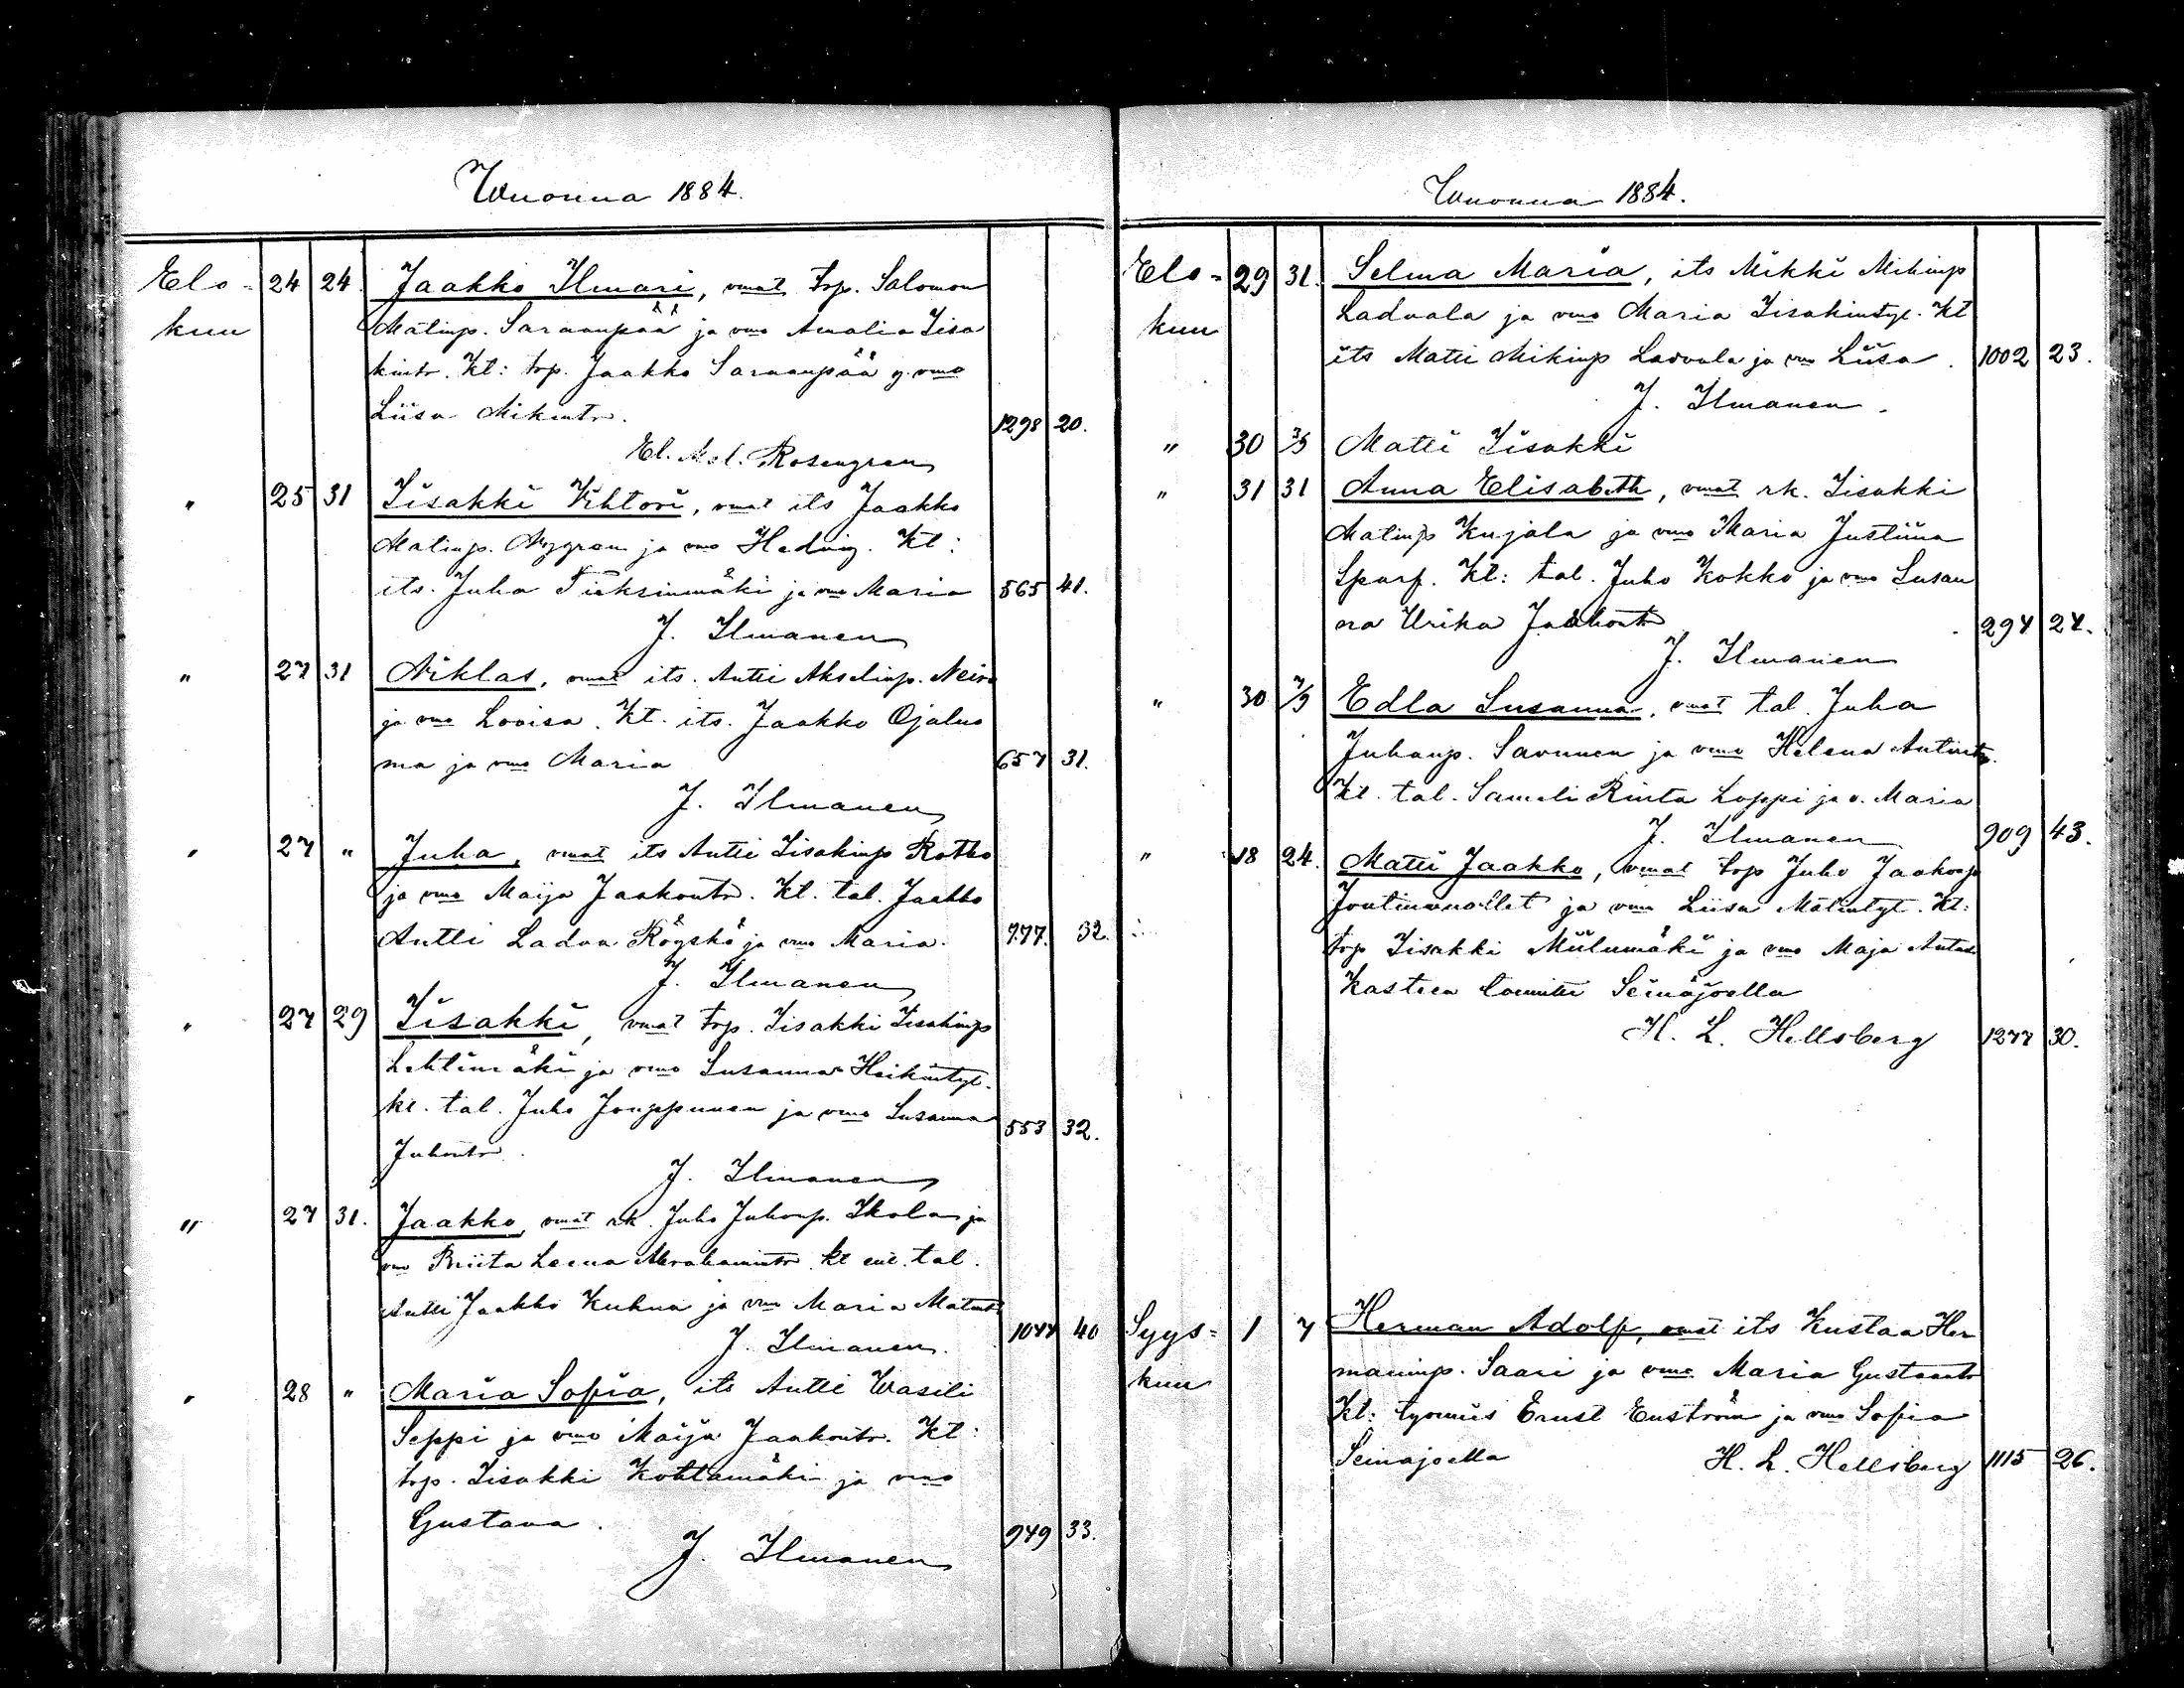 Wuonna 1884.
Elo- 24 24. Jaakko Ilmari, vmat trp. Salomon
kuu Matinp. Saraanpää ja vmo Amalia Iisa
kintr. Kt: trp. Jaakko Saraanpää j. vmo
Liisa Mikintr. 1298 20.
El. Rosengren
" 25 31 Iisakki Vihtori, vmat its Jaakko
Matinp. Nygren ja vmo Hedvig. Kt:
its. Juha Tieksinmäki ja vmo Maria 565 41.
J. Ilmanen
" 27 31 Niklas, vmat its. Antti Akselinp. Neiro
ja vmo Lovisa. Kt. its. Jaakko Ojaluo
ma ja vmo Maria 657 31.
J. Ilmanen
" 27 " Juha, vmat its Antti Iisakinp Rotko
ja vmo Maija Jaakontr. Kt. tal. Jaakko
Antti Ladva Röyskö ja vmo Maria. 777. 32.
J. Ilmanen
" 27 29 Iisakki, vmat trp. Iisakki Iisakinp
Lehtimäki ja vmo Susanna Heikintyt.
kt. tal. Juho Jouppunen ja vmo Susanna 553 32.
Juhontr.
J. Ilmanen
" 27 31. Jaakko, vmat rk. Juho Juhonp. Ikola ja
vmo Briita Leena Abrahamintr. kt ent. tal.
Antti Jaakko Kuhna ja vmo Maria Matint
J. Ilmanen. 1077 40
" 28 " Maria Sofia, its Antti Wasili
Seppi ja vmo Maija Jaakontr. Kt:
trp. Iisakki Kohtamäki ja vmo
Gustava. 949 33.
J. Ilmanen
Wuonna 1884.
Elo- 29 31. Selma Maria, its Mikki Mikinp
kuu Ladvala ja vmo Maria Iisakintyt. Kt
its Matti Mikinp Ladvala ja vmo Liisa. 1002 23.
J. Ilmanen.
" 30 Matti Iisakki
" 31 31 Anna Elisabeth, vmat rk. Iisakki
Matinp Kujala ja vmo Maria Justiina
Sparf. Kt: tal. Juho Kokko ja vmo Susan
na Urika Jaakont 297 27.
J. Ilmanen
" 30 7/9 Edla Susanna, vmat tal. Juha
Juhanp. Savunen ja vmo Helena Antintr.
Kt. tal. Sameli Rinta Loppi ja v. Maria
J. Ilmanen 909 43.
" 18 24. Matti Jaakko, vmat trp Juho Jaakonp
Joutinvuollet ja vmo Liisa Matintyt. Kt:
trp Iisakki Miilumäki ja vmo Maja
Kasteen toimitti Seinäjoella
H. L. Hellsberg 1277 30.
Syys- 1 7 Herman Adolf, vmat its Kustaa Her
kuu maninp. Saari ja vmo Maria Gustaantr
Kt: työmies Ernst Enström ja vmo Sofia
Seinajoella H. L. Hellsberg 1115 26.